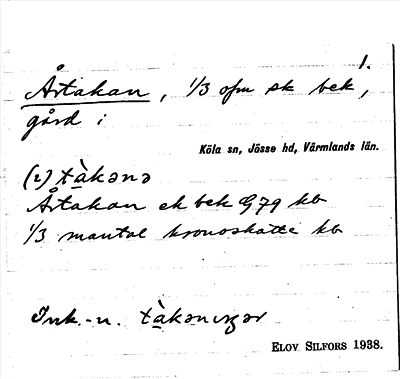 1.
Årtakan, 1/3 ofm sk bek,
gård i
Köla sn, Jösse hd, Värmlands län.
(2) tàkənə
Årtakan ek bek G79 kb
1/3 mantal kronoskatte kb
Ink.-n. tàkənıŋgər
ELOV SILFORS 1938.